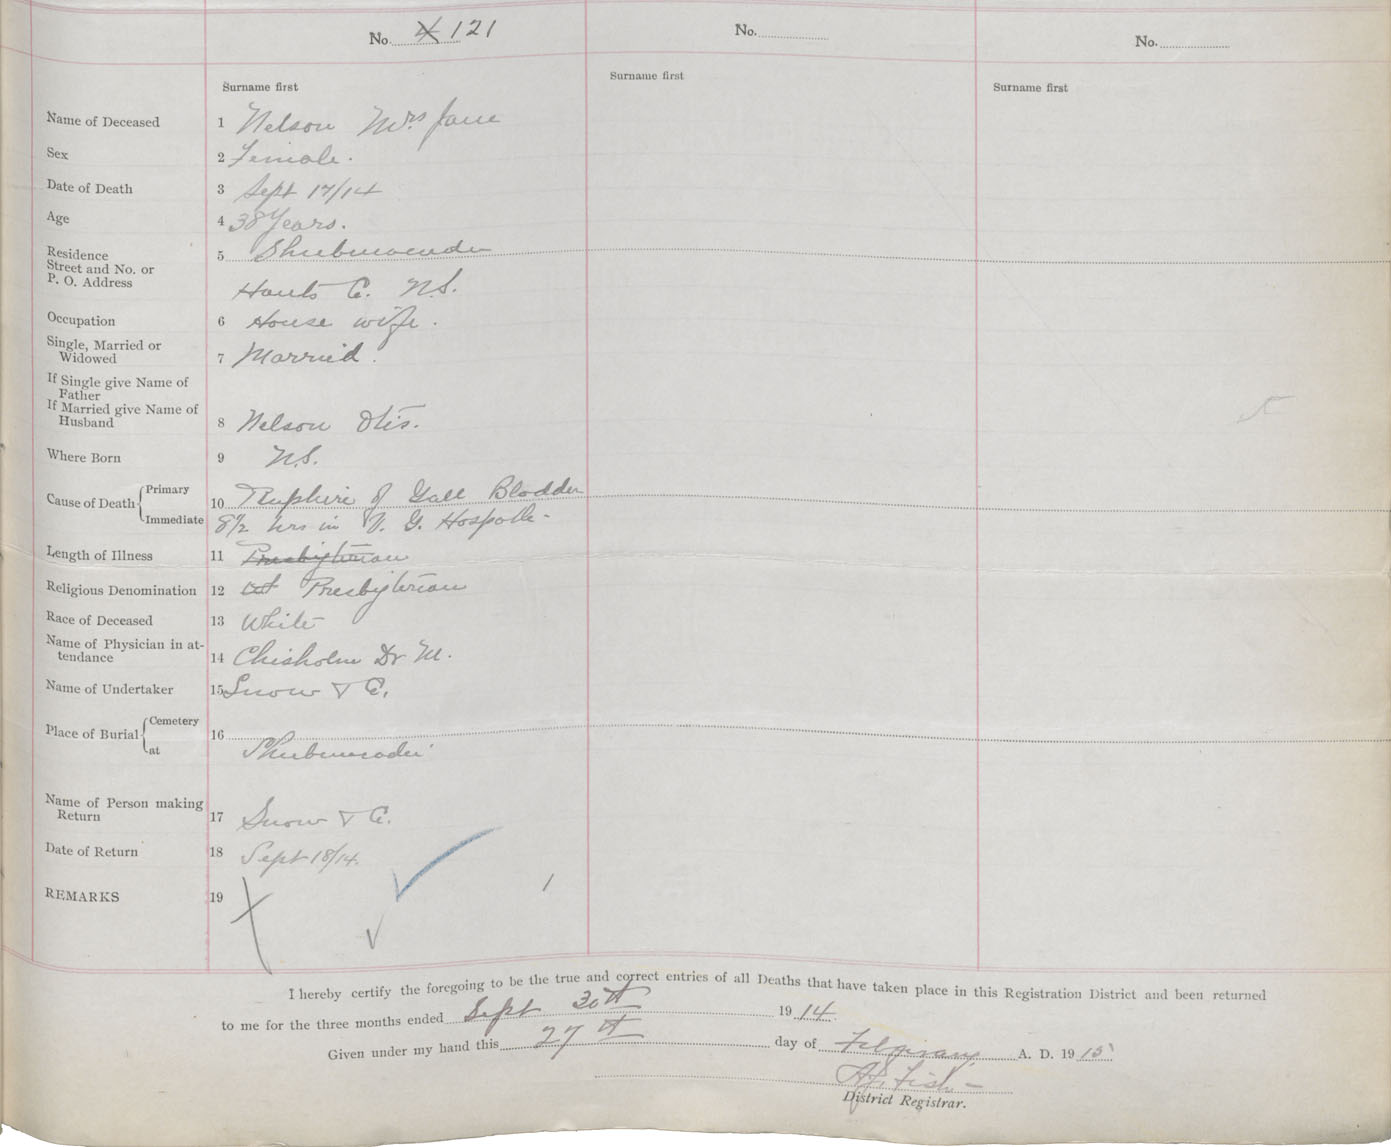 No. 4 121
No.
No.
Surname first
Surname first
Surname first
Name of Deceased 1 Nelson Mrs Jane
Sex 2 Female.
Date of Death 3 Sept 17/14
Age 4 38 Years.
Residence 5 Shubenacadie
Street and No. or
P. O. Address
Hants C. N.S.
Occupation 6 House wife.
Single, Married or
Widowed 7 Married.
If Single give Name of
Father
If Married give Name of
Husband 8 Nelson Otis.
Where Born 9 N.S.
Cause of Death Primary 10 Rupture of Gall Bladder
Immediate 8½ hrs in V. G. Hospital -
Length of Illness 11 Presbyterian
Religious Denomination 12 Presbyterian
Race of Deceased 13 White
Name of Physician in at-
tendance 14 Chisholm Dr M.
Name of Undertaker 15 Snow & C.
Place of Burial Cemetery 16
at Shubenacadie
Name of Person making
Return 17 Snow & C.
Date of Return 18 Sept 18/14.
REMARKS 19
I hereby certify the foregoing to be the true and correct entries of all Deaths that have taken place in this Registration District and been returned
to me for the three months ended Sept 30th 1914
Given under my hand this 27th day of February A. D. 1915
A.J. Fish -
District Registrar.